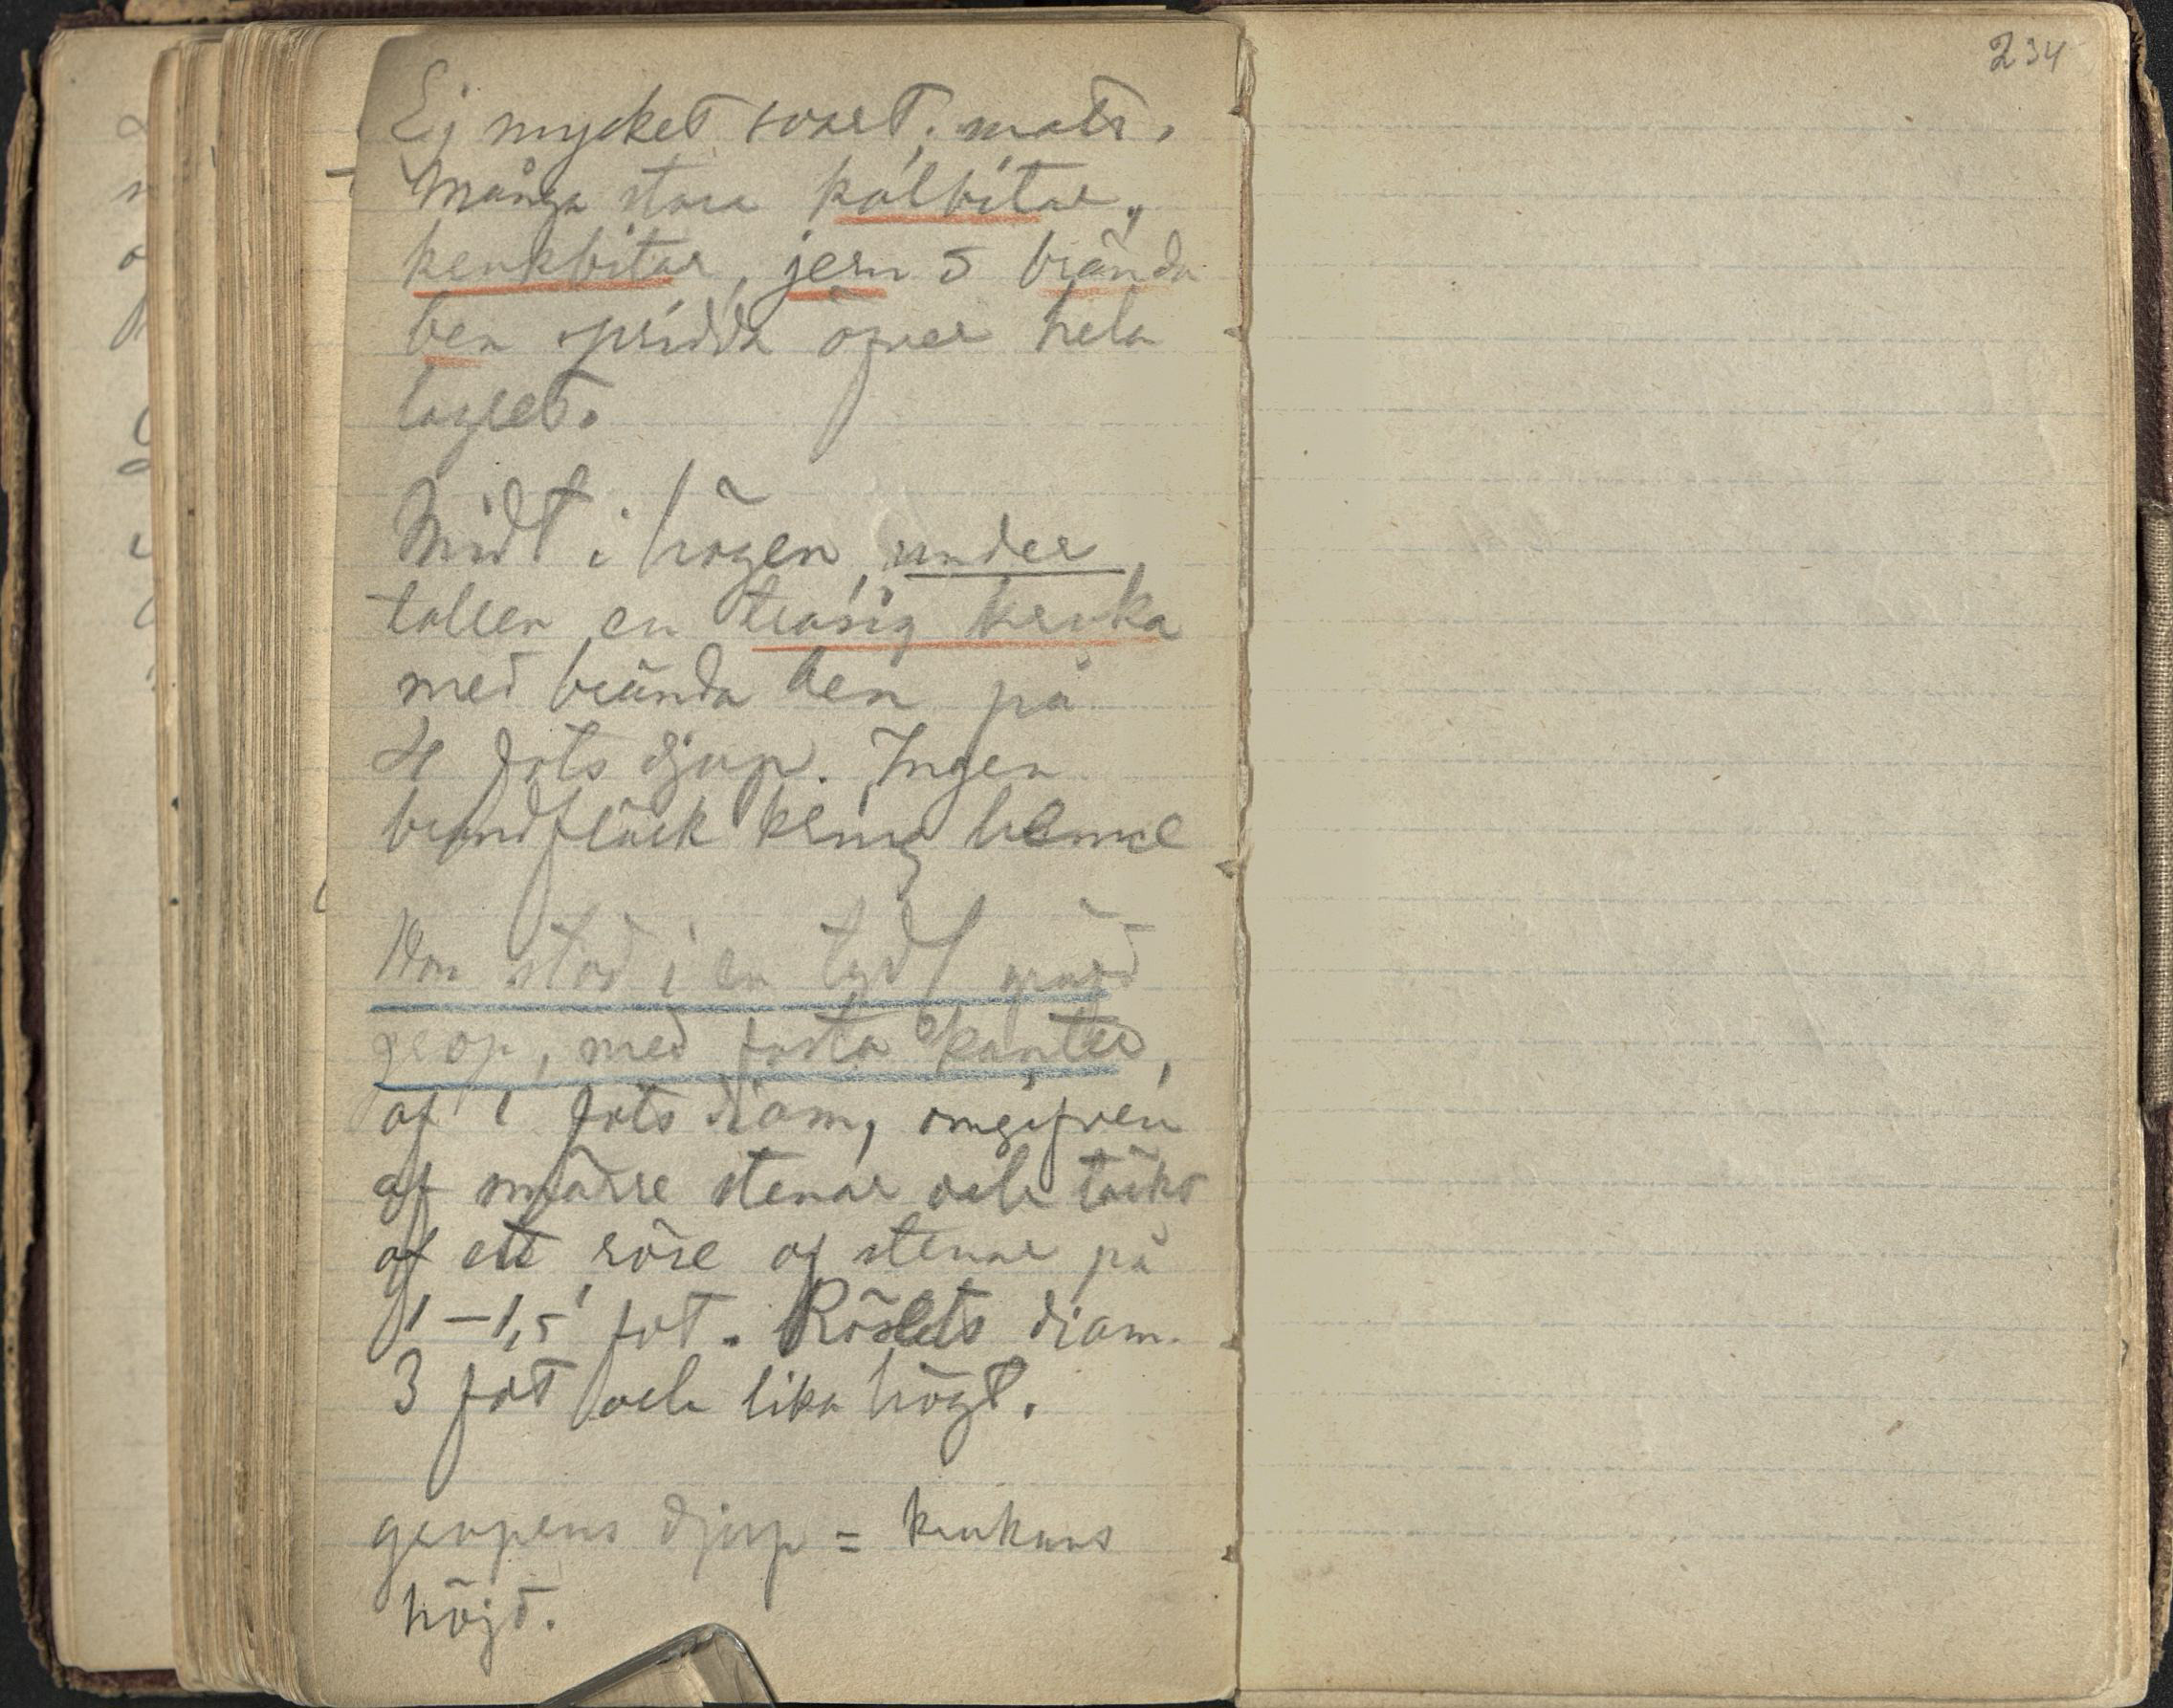 Ej mycket svart, matr.
Många stora kolbitar,
krukbitar, jern o brända
ben spridda öfver hela
lagret.
Midt i högen, under
tallen en trasig kruka
med brända ben på
4 fots djup. Ingen
brandfläck kring henne
Hon stod i en tydl gräfd
grop, med fasta kanter,
af 1 fots diam, omgifven
af smärre stenar och täckt
af ett röse af stenar på
1-1,5' fot. Rösets diam.
3 fot och lika högt.
gropens djup = krukans
höjd.
234